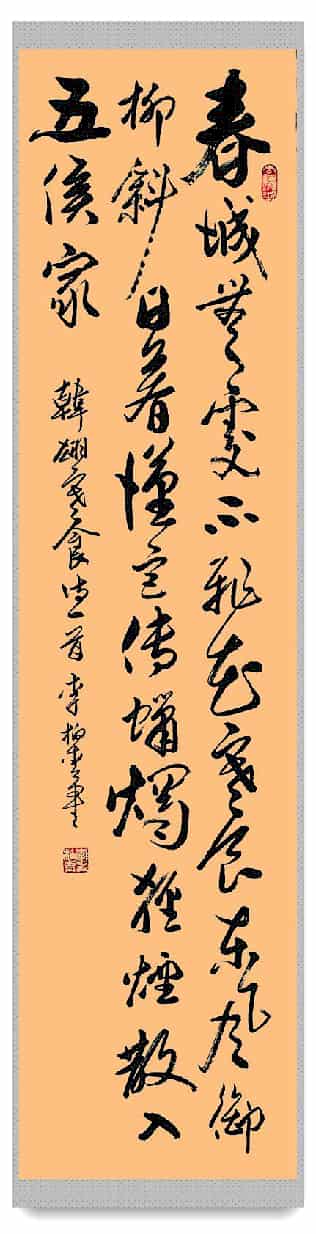 春城無處不飛花寒食東風御
柳斜日暮漢宮傳蠟燭輕煙散入
五侯家
韓翃寒食詩一首李柏書